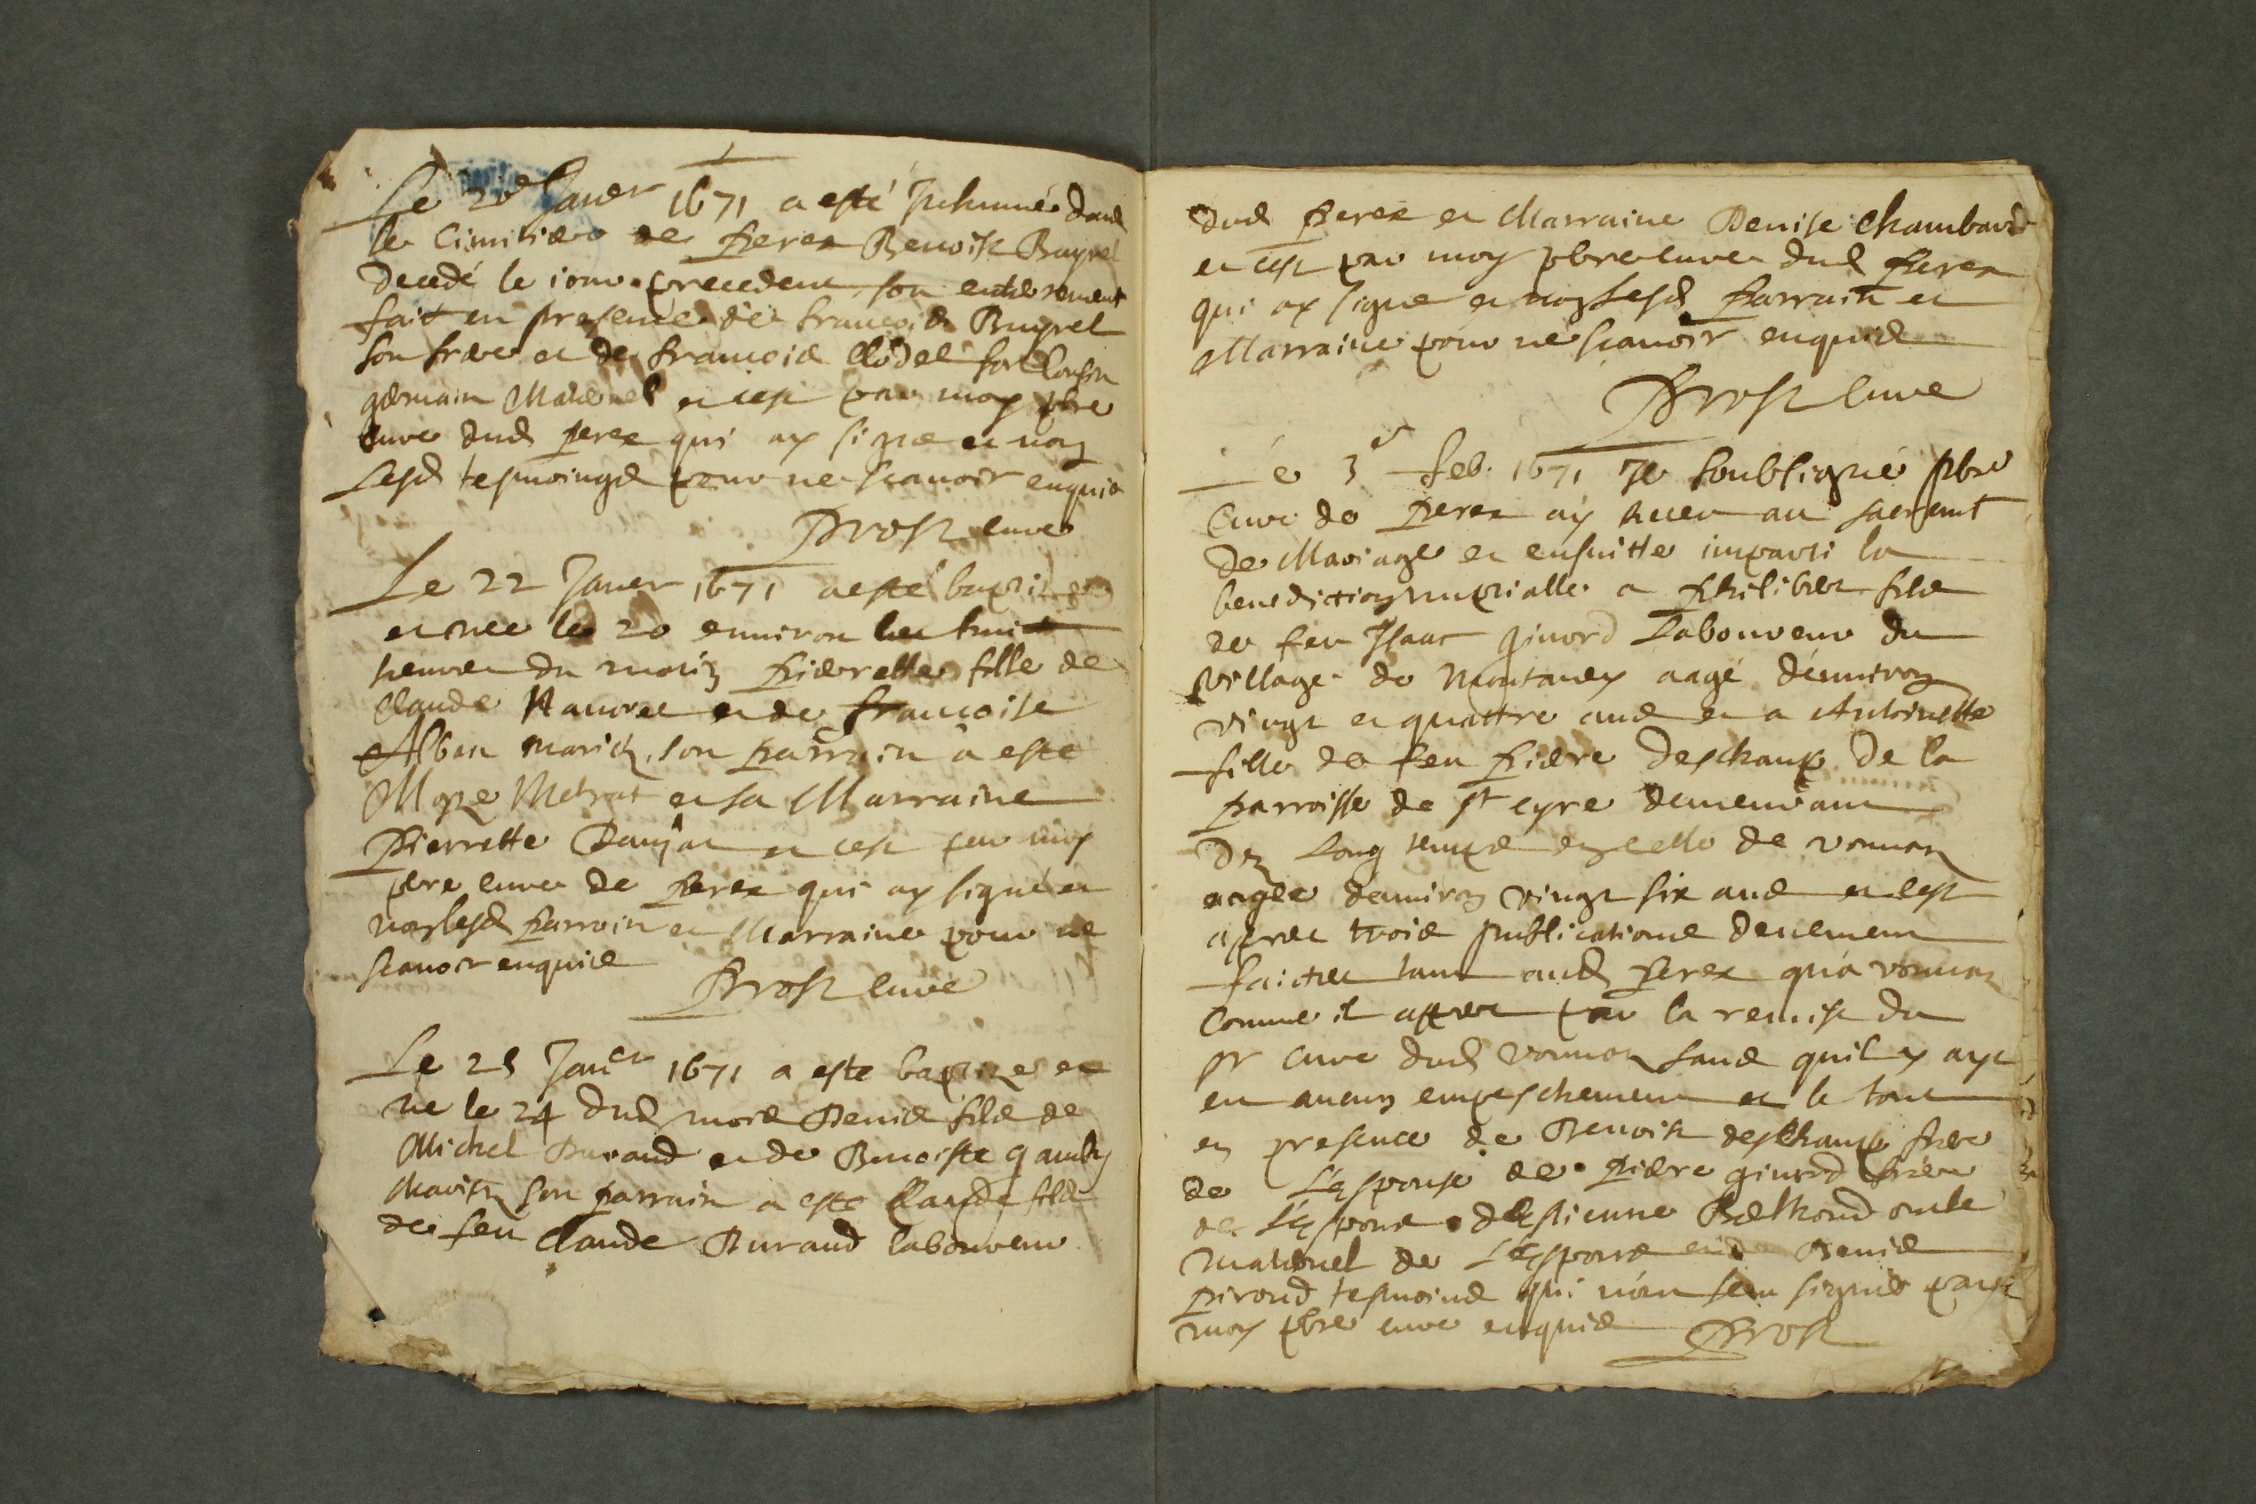 Le 20e Janer 1671 a esté Inhumé dans
le Cimitiere de perex Benoist Buyret
decedé le iour precedent, son enterrement
fait en presence de francois Buyret
son frere et de francois son Cousin
germain Maternel et cest par moy pbre
Cure dud perex qui ay signe et non
Lesd tesmoings pour ne scavoir enquis
Prost cure
Le 22 Janer 1671 a esté baptizee
et nee le 20 environ les huit
heures du matin pierrette fille de
Claude et de francoise
Alban mariez, son parrain a esté
Moyze Metrat et sa Marraine
Pierrette et cest par moy
pbre cure de perex qui ay signé et
non lesd parrain et Marraine pour ne
scavoir enquis
Prost cure
Le 25 Janer 1671 a este baptizé et
né le 24 dud mois Denis fils de
Michel Durand et de Benoiste
Mariez son parrain a este Claude fils
de feu Claude Durand laboureur
dud perex et Marraine Denise Chambard
et cest par moy pbre cure dud perex
qui ay signe et non Lesd parrain et
Marraine pour ne scavoir enquis
Prost Cure
Le 3e feb. 1671 Je soubsigné pbre
Cure de perex ay receu au sacremt
de Mariage et ensuitte imparti la
benediction nuptialle a philibert fils
de feu Isaac Laboureur du
village de Montaney aagé denviron
vingt et quattre ans et a Antoinette
fille de feu pierre deschamp de la
parroisse de St cyre demeurant
dez Long temps en celle de vonnaz
aagee denviron vingt six ans et cest
apres trois publications deuement
faictes tant aud perex qu'a vonnaz
Comme il appert par la remise du
Sr Cure dud vonnaz sans quil y aye
eu aucun empeschement et le tout
en presence de Benoist deschamp frere
de L'espouse de pierre frere
de L'espoux destienne oncle
maternel de L'espoux et de Denis
tesmoins qui n'ont sceu signer par
moy pbre cure enquis Prost